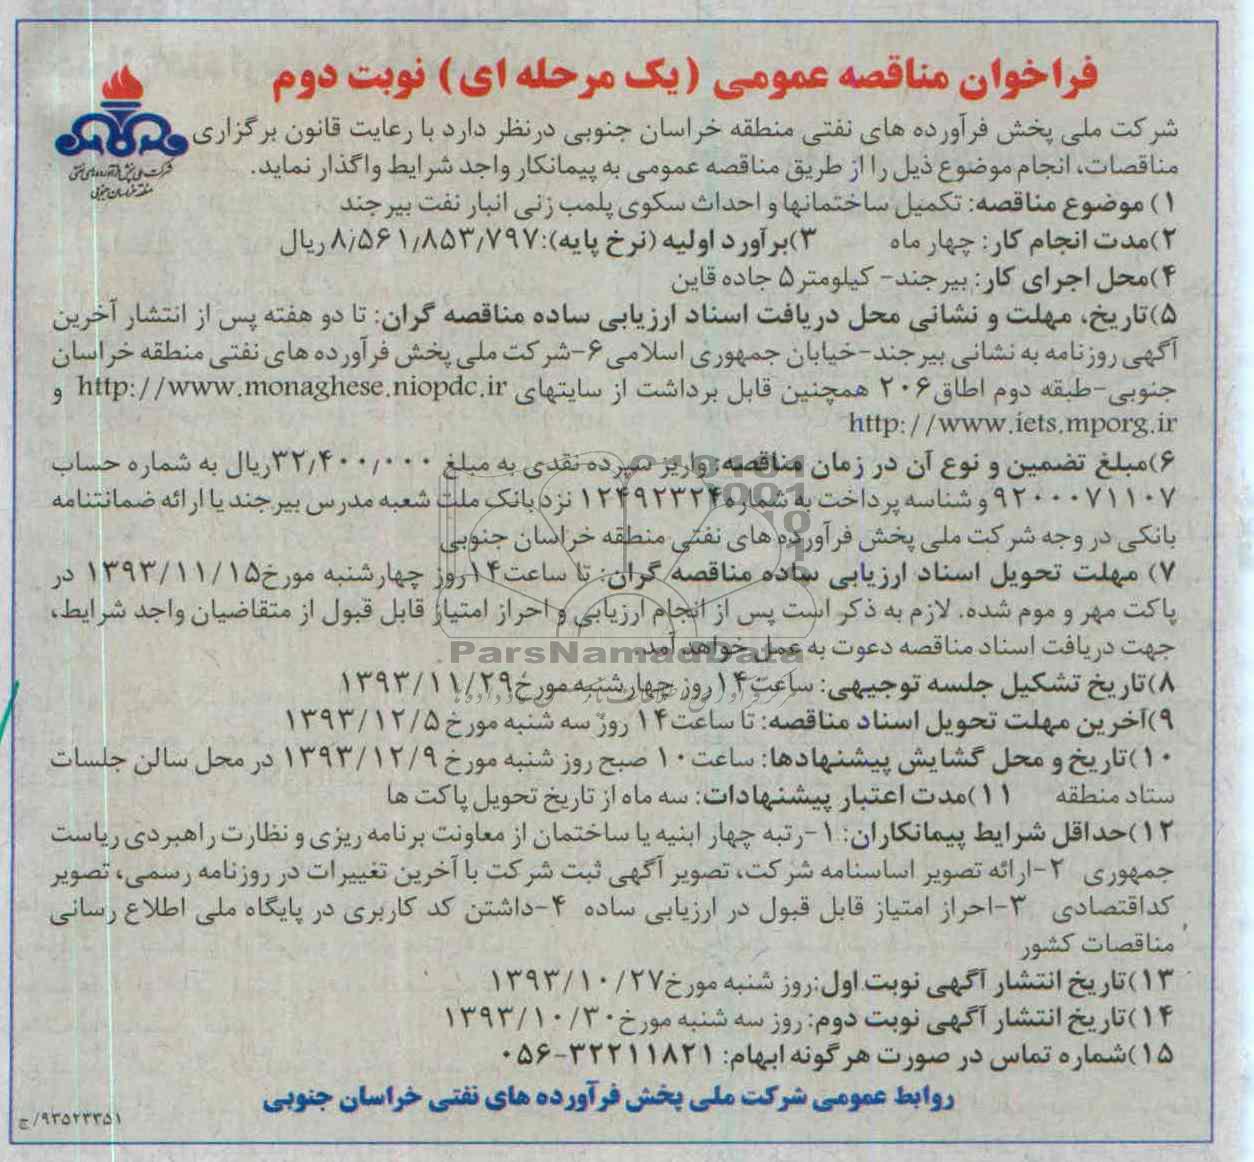 فراخوان مناقصه عمومی (یک مرحله ای) نوبت دوم
شرکت ملی پخش فرآورده های نفتی
منطقه خراسان جنوبی
شرکت ملی پخش فرآورده های نفتی منطقه خراسان جنوبی درنظر دارد با رعایت قانون برگزاری
مناقصات، انجام موضوع ذیل را از طریق مناقصه عمومی به پیمانکار واجد شرایط واگذار نماید.
۱) موضوع مناقصه: تکمیل ساختمانها و احداث سکوی پلمب زنی انبار نفت بیرجند
۲)مدت انجام کار: چهار ماه ۳)برآورد اولیه (نرخ پایه):۸/۵۶۱/۸۵۳/۷۹۷ ریال
۴)محل اجرای کار: بیرجند- کیلومتر۵ جاده قاین
۵)تاریخ، مهلت و نشانی محل دریافت اسناد ارزیابی ساده مناقصه گران: تا دو هفته پس از انتشار آخرین
آگهی روزنامه به نشانی بیرجند-خیابان جمهوری اسلامی۶-شرکت ملی پخش فرآورده های نفتی منطقه خراسان
جنوبی-طبقه دوم اطاق۲۰۶ همچنین قابل برداشت از سایتهای http://www.monaghese.niopdc.ir و
http://www.iets.mporg.ir
۶)مبلغ تضمین و نوع آن در زمان مناقصه: واریز سپرده نقدی به مبلغ ۳۲/۴۰۰/۰۰۰ریال به شماره حساب
۹۲۰۰۰۷۱۱۰۷ و شناسه پرداخت به شماره۱۲۴۹۲۳۲۴ نزد بانک ملت شعبه مدرس بیرجند یا ارائه ضمانتنامه
بانکی در وجه شرکت ملی پخش فرآورده های نفتی منطقه خراسان جنوبی
۷) مهلت تحویل اسناد ارزیابی ساده مناقصه گران: تا ساعت۱۴روز چهارشنبه مورخ۱۳۹۳/۱۱/۱۵ در
پاکت مهر و موم شده. لازم به ذکر است پس از انجام ارزیابی و احراز امتیاز قابل قبول از متقاضیان واجد شرایط،
جهت دریافت اسناد مناقصه دعوت به عمل خواهد آمد.
ParsNamadData
۸)تاریخ تشکیل جلسه توجیهی: ساعت۱۴روز چهارشنبه مورخ۱۳۹۳/۱۱/۲۹
۹)آخرین مهلت تحویل اسناد مناقصه: تا ساعت۱۴ روز سه شنبه مورخ ۱۳۹۳/۱۲/۵
۱۰)تاریخ و محل گشایش پیشنهادها: ساعت۱۰ صبح روز شنبه مورخ ۱۳۹۳/۱۲/۹ در محل سالن جلسات
ستاد منطقه ۱۱)مدت اعتبار پیشنهادات: سه ماه از تاریخ تحویل پاکت ها
۱۲)حداقل شرایط پیمانکاران: ۱-رتبه چهار ابنیه یا ساختمان از معاونت برنامه ریزی و نظارت راهبردی ریاست
جمهوری ۲-ارائه تصویر اساسنامه شرکت، تصویر آگهی ثبت شرکت با آخرین تغییرات در روزنامه رسمی، تصویر
کداقتصادی ۳-احراز امتیاز قابل قبول در ارزیابی ساده ۴-داشتن کد کاربری در پایگاه ملی اطلاع رسانی
مناقصات کشور
۱۳)تاریخ انتشار آگهی نوبت اول:روز شنبه مورخ۱۳۹۳/۱۰/۲۷
۱۴)تاریخ انتشار آگهی نوبت دوم: روز سه شنبه مورخ۱۳۹۳/۱۰/۳۰
۱۵)شماره تماس در صورت هرگونه ابهام: ۳۲۲۱۱۸۲۱-۰۵۶
روابط عمومی شرکت ملی پخش فرآورده های نفتی خراسان جنوبی
۹۳۵۲۳۳۵۱/ج